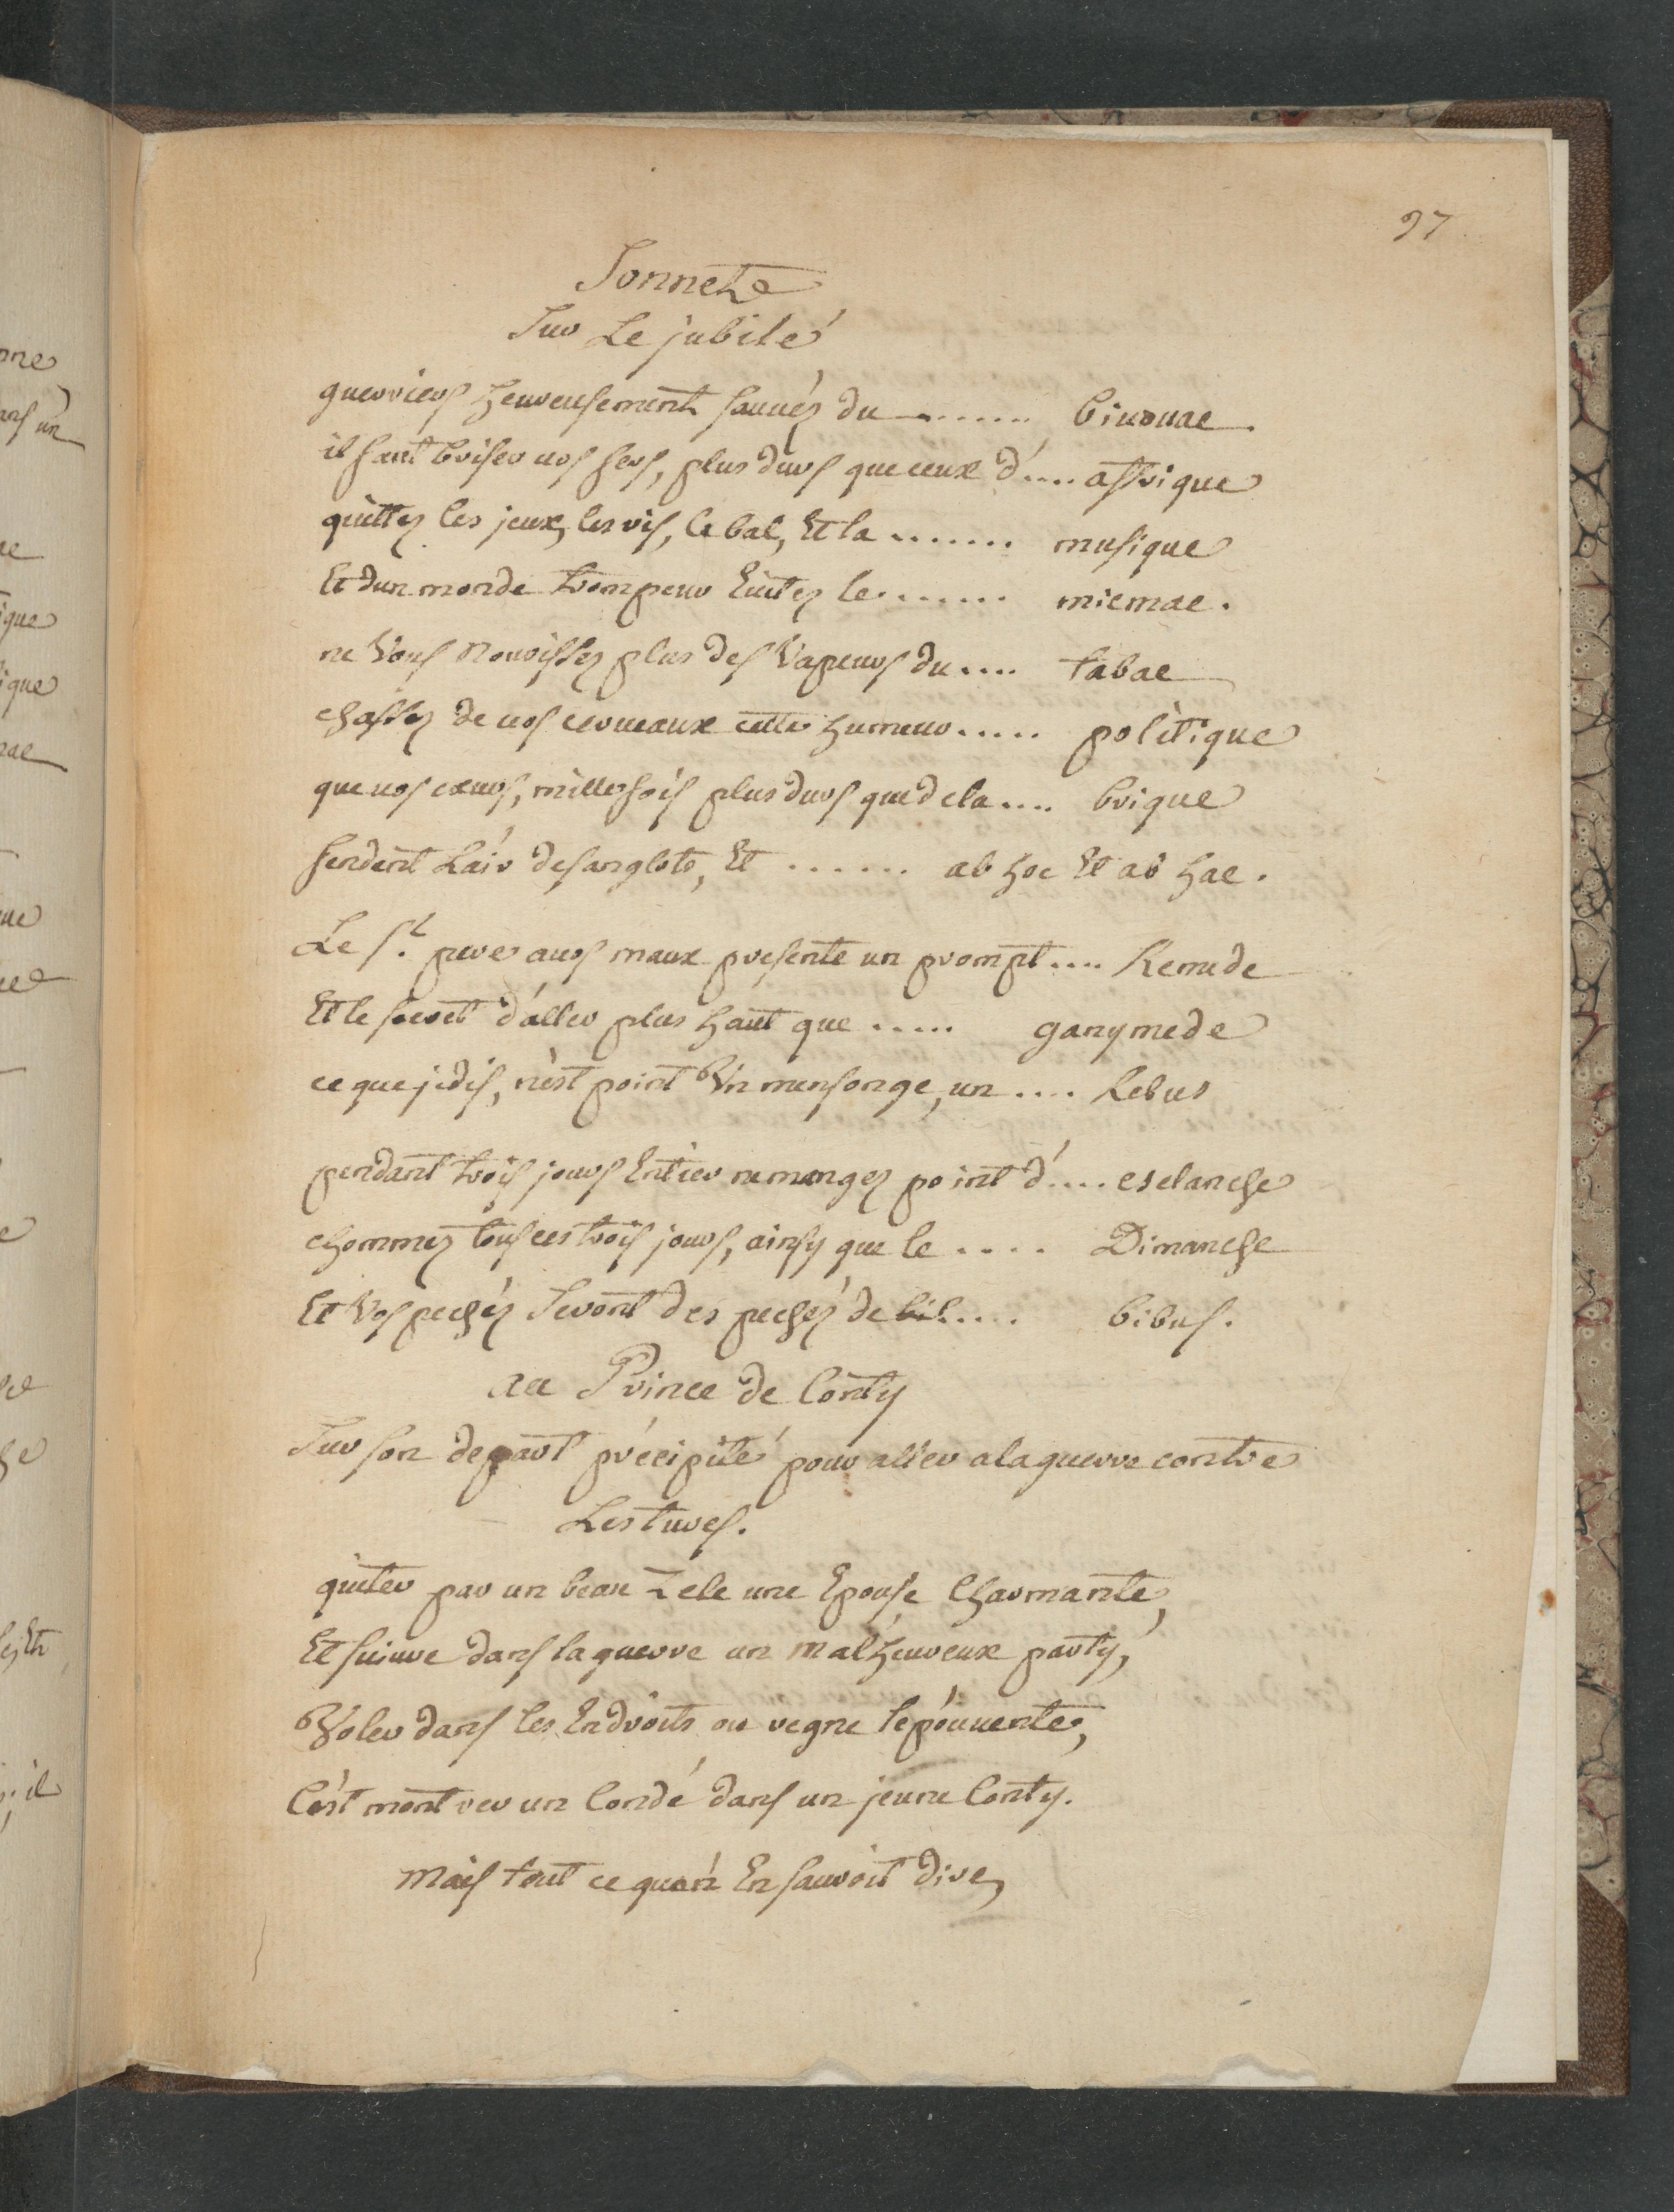 97
Sonnet
Sur Le jubilé
guerriers heureusement sauués du ........ biuouac
il faut briser uos fers, plus durs que ceux d'.... affrique
quittez les jeux, les ris, le bal, Et la ....... musique
Et dun monde trompeur Euitez le ....... micmac.
ne Vous nourissez plus des Vapeurs du .... tabac
chassez de uos cerueaux cette humeur ..... politique
que uos cœurs, mille fois plus durs que de la .... brique
fendent L'air de sanglots, Et ...... ab hoc Et ab hac.
Le st. pere a uos maux presente un prompt .... Remede
Et le secret d'aller plus haut que ..... ganymede
ce que je dis, n'est point Un mensonge, un .... Rebus
pendant trois jours Entier ne mangez point d'.... esclanche
chommez tous ces trois jours, ainsy que le .... Dimanche
Et Vos pechéz Seront des pechéz de bib.... bibus.
au Prince de Conty
Sur son depart précipité pour aller a la guerre contre
Les turcs.
quiter par un beau Zele une Epouse Charmante,
Et suiure dans la guerre un malheureux party,
Voler dans les Endroits ou regne l'epouuente,
C'est montrer un Condé dans un jeune Conty.
Mais tout ce quon En sauroit dire,
nne
ans un
ique
ique
mac
il